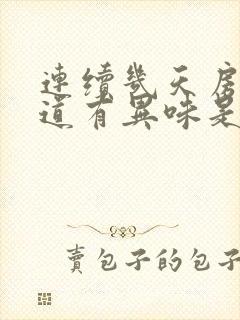 連續幾天房
道有異味是
賣包子的包子